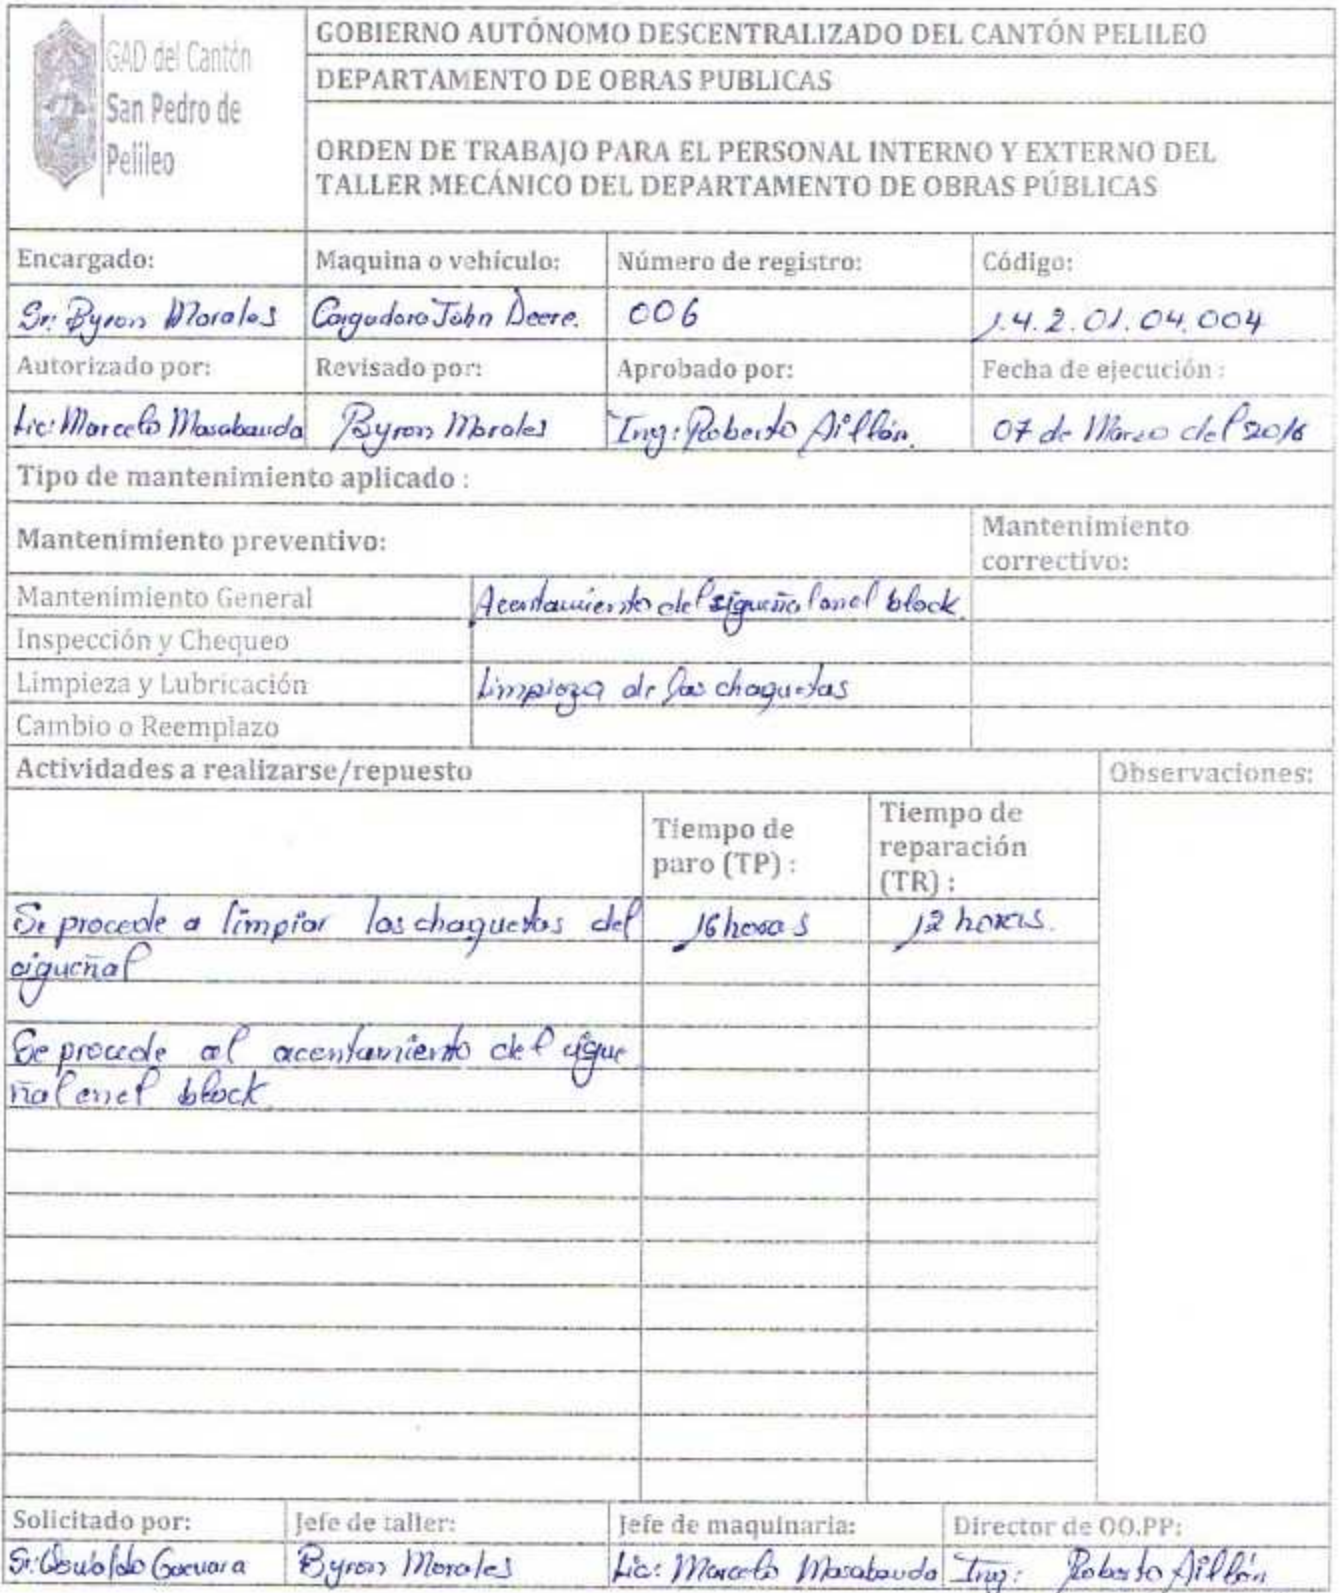 GAD del Cantón
San Pedro de
Pelileo
GOBIERNO AUTÓNOMO DESCENTRALIZADO DEL CANTÓN PELILEO
DEPARTAMENTO DE OBRAS PUBLICAS
ORDEN DE TRABAJO PARA EL PERSONAL INTERNO Y EXTERNO DEL
TALLER MECÁNICO DEL DEPARTAMENTO DE OBRAS PÚBLICAS
Encargado: Maquina o vehículo: Número de registro: Código:
Sr: Byron Morales Cargadora John Deere. 006 1.4.2.01.04.004
Autorizado por: Revisado por: Aprobado por: Fecha de ejecución :
Lic: Marcelo Masabanda Byron Morales Ing: Roberto Aillón. 07 de Marzo del 2016
Tipo de mantenimiento aplicado :
Mantenimiento preventivo: Mantenimiento
correctivo:
Mantenimiento General Acentamiento del sigueñal en el block.
Inspección y Chequeo
Limpieza y Lubricación Limpieza de las chaquetas
Cambio o Reemplazo
Actividades a realizarse/repuesto Observaciones:
Tiempo de
paro (TP) :
Tiempo de
reparación
(TR) :
Se procede a limpiar las chaquetas del 16 horas 12 horas.
cigueñal
Se procede al acentamiento del cigue
ñal en el block
Solicitado por: Jefe de taller: Jefe de maquinaria: Director de OO.PP:
Sr: Oswaldo Guevara Byron Morales Lic: Marcelo Masabanda Ing: Roberto Aillón